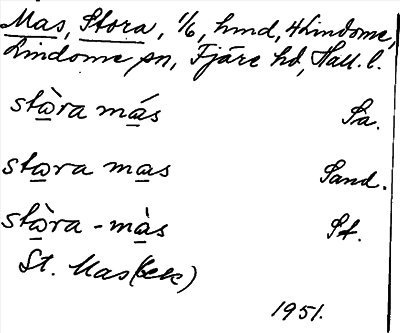 Mas, Stora, 1/6, hmd, 4 Lindome,
Lindome sn, Fjäre hd, Hall. l.
stàra más Sa.
stora mas Sand.
stàra - màs Sf.
St. Mas (ek)
1951.